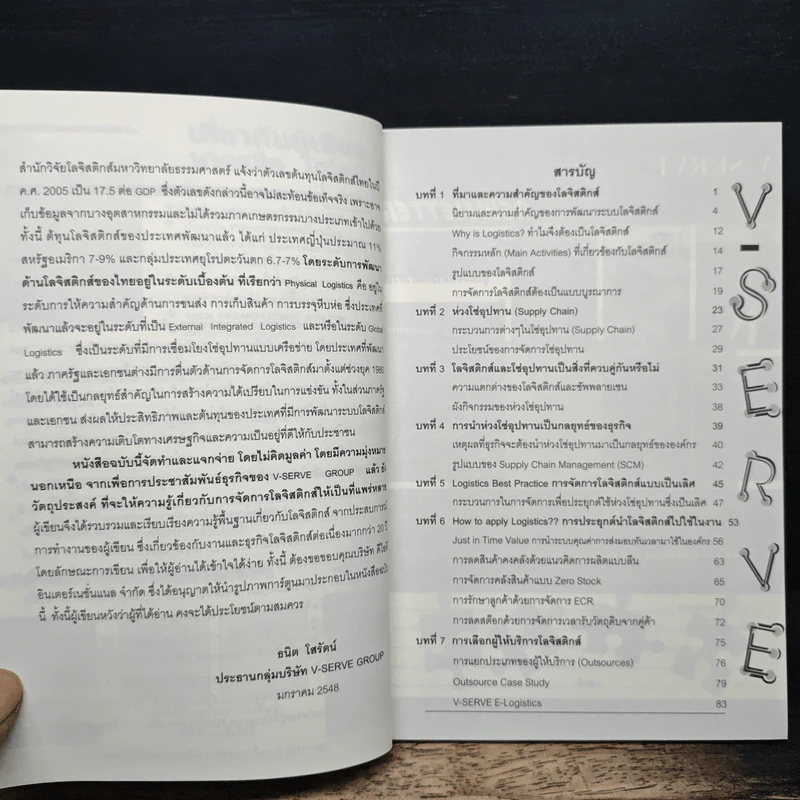 สำนักวิจัยโลจิสติกส์มหาวิทยาลัยธรรมศาสตร์ แจ้งว่าตัวเลขต้นทุนโลจิสติกส์ไทยในปี
ค.ศ. 2005 เป็น 17.5 ต่อ GDP ซึ่งตัวเลขดังกล่าวนี้อาจไม่สะท้อนข้อเท็จจริง เพราะอาจ
เก็บข้อมูลจากบางอุตสาหกรรมและไม่ได้รวมภาคเกษตรกรรมบางประเภทเข้าไปด้วย
ทั้งนี้ ต้ทุนโลจิสติกส์ของประเทศพัฒนาแล้ว ได้แก่ ประเทศญี่ปุ่นประมาณ 11%
สหรัฐอเมริกา 7-9% และกลุ่มประเทศยุโรปตะวันตก 6.7-7% โดยระดับการพัฒนา
ด้านโลจิสติกส์ของไทยอยู่ในระดับเบื้องต้น ที่เรียกว่า Physical Logistics คือ อยู่ใน
ระดับการให้ความสำคัญด้านการขนส่ง การเก็บสินค้า การบรรจุหีบห่อ ซึ่งประเทศที่
พัฒนาแล้วจะอยู่ในระดับที่เป็น External Integrated Logistics และหรือในระดับ Global
Logistics ซึ่งเป็นระดับที่มีการเชื่อมโยงโซ่อุปทานแบบเครือข่าย โดยประเทศที่พัฒนา
แล้ว ภาครัฐและเอกชนต่างมีการตื่นตัวด้านการจัดการโลจิสติกส์มาตั้งแต่ช่วงยุค 1980
โดยได้ใช้เป็นกลยุทธ์สำคัญในการสร้างความได้เปรียบในการแข่งขัน ทั้งในส่วนภาครัฐ
และเอกชน ส่งผลให้ประสิทธิภาพและต้นทุนของประเทศที่มีการพัฒนาระบบโลจิสติกส์
สามารถสร้างความเติบโตทางเศรษฐกิจและความเป็นอยู่ที่ดีให้กับประชาชน
หนังสือฉบับนี้จัดทำและแจกจ่าย โดยไม่คิดมูลค่า โดยมีความมุ่งหมาย
นอกเหนือ จากเพื่อการประชาสัมพันธ์ธุรกิจของ V-SERVE GROUP แล้ว ยัง
วัตถุประสงค์ ที่จะให้ความรู้เกี่ยวกับการจัดการโลจิสติกส์ให้เป็นที่แพร่หลาย
ผู้เขียนจึงได้รวบรวมและเรียบเรียงความรู้พื้นฐานเกี่ยวกับโลจิสติกส์ จากประสบการณ์
การทำงานของผู้เขียน ซึ่งเกี่ยวข้องกับงานและธุรกิจโลจิสติกส์ต่อเนื่องมากกว่า 20 ปี
โดยลักษณะการเขียน เพื่อให้ผู้อ่านได้เข้าใจได้ง่าย ทั้งนี้ ต้องขอขอบคุณบริษัท
อินเตอร์เนชั่นแนล จำกัด ซึ่งได้อนุญาตให้นำรูปภาพการ์ตูนมาประกอบในหนังสือฉบับ
นี้ ทั้งนี้ผู้เขียนหวังว่าผู้ที่ได้อ่าน คงจะได้ประโยชน์ตามสมควร
ธนิต โสรัตน์
ประธานกลุ่มบริษัท V-SERVE GROUP
มกราคม 2548
สารบัญ
บทที่ 1 ที่มาและความสำคัญของโลจิสติกส์ 1
นิยามและความสำคัญของการพัฒนาระบบโลจิสติกส์ 4
Why is Logistics? ทำไมจึงต้องเป็นโลจิสติกส์ 12
กิจกรรมหลัก (Main Activities) ที่เกี่ยวข้องกับโลจิสติกส์ 14
รูปแบบของโลจิสติกส์ 17
การจัดการโลจิสติกส์ต้องเป็นแบบบูรณาการ 19
บทที่ 2 ห่วงโซ่อุปทาน (Supply Chain) 23
กระบวนการต่างๆในโซ่อุปทาน (Supply Chain) 27
ประโยชน์ของการจัดการโซ่อุปทาน 29
บทที่ 3 โลจิสติกส์และโซ่อุปทานเป็นสิ่งที่ควบคู่กันหรือไม่ 31
ความแตกต่างของโลจิสติกส์และซัพพลายเชน 33
ผังกิจกรรมของห่วงโซ่อุปทาน 38
บทที่ 4 การนำห่วงโซ่อุปทานเป็นกลยุทธ์ของธุรกิจ 39
เหตุผลที่ธุรกิจจะต้องนำห่วงโซ่อุปทานมาเป็นกลยุทธ์ขององค์กร 40
รูปแบบของ Supply Chain Management (SCM) 42
บทที่ 5 Logistics Best Practice การจัดการโลจิสติกส์แบบเป็นเลิศ 45
กระบวนการในการจัดการเพื่อประยุกต์ใช้ห่วงโซ่อุปทานซึ่งเป็นเลิศ 47
บทที่ 6 How to apply Logistics?? การประยุกต์นำโลจิสติกส์ไปใช้ในงาน 53
Just in Time Value การนำระบบคุณค่าการส่งมอบทันเวลามาใช้ในองค์กร 56
การลดสินค้าคงคลังด้วยแนวคิดการผลิตแบบลีน 63
การจัดการคลังสินค้าแบบ Zero Stock 65
การรักษาลูกค้าด้วยการจัดการ ECR 70
การลดสต๊อกด้วยการจัดการเวลารับวัตถุดิบจากคู่ค้า 72
บทที่ 7 การเลือกผู้ให้บริการโลจิสติกส์ 75
การแยกประเภทของผู้ให้บริการ (Outsources) 76
Outsource Case Study 79
V-SERVE E-Logistics 83
V-SERVE